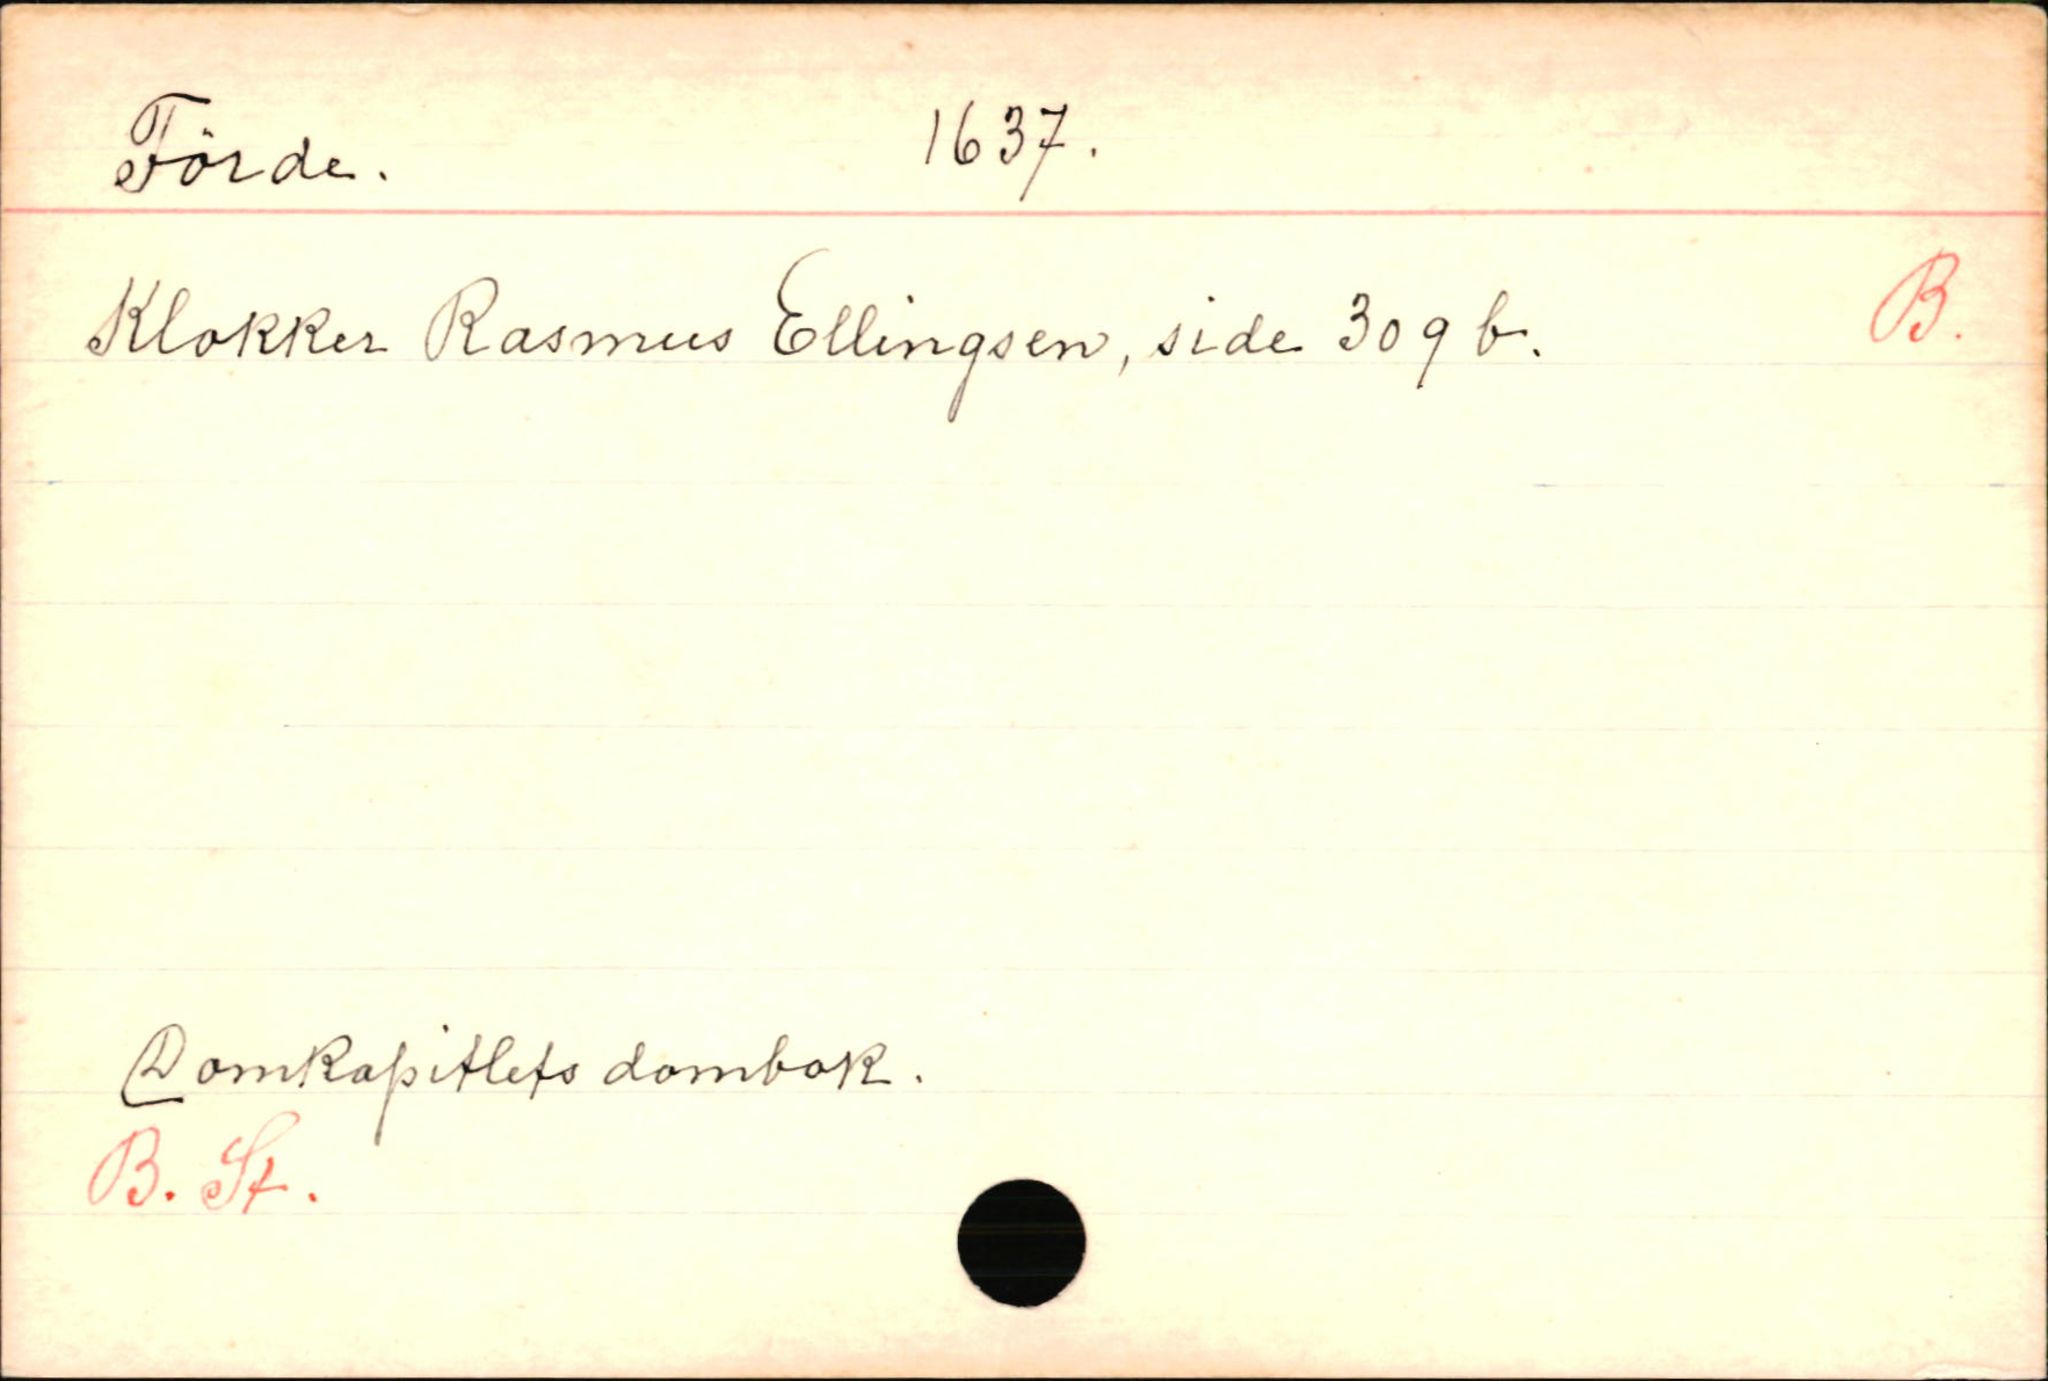 Förde. 1637.
Klokker Rasmus Ellingsen, side 309 b. B.
Domkapitlets dombok.
B. St.